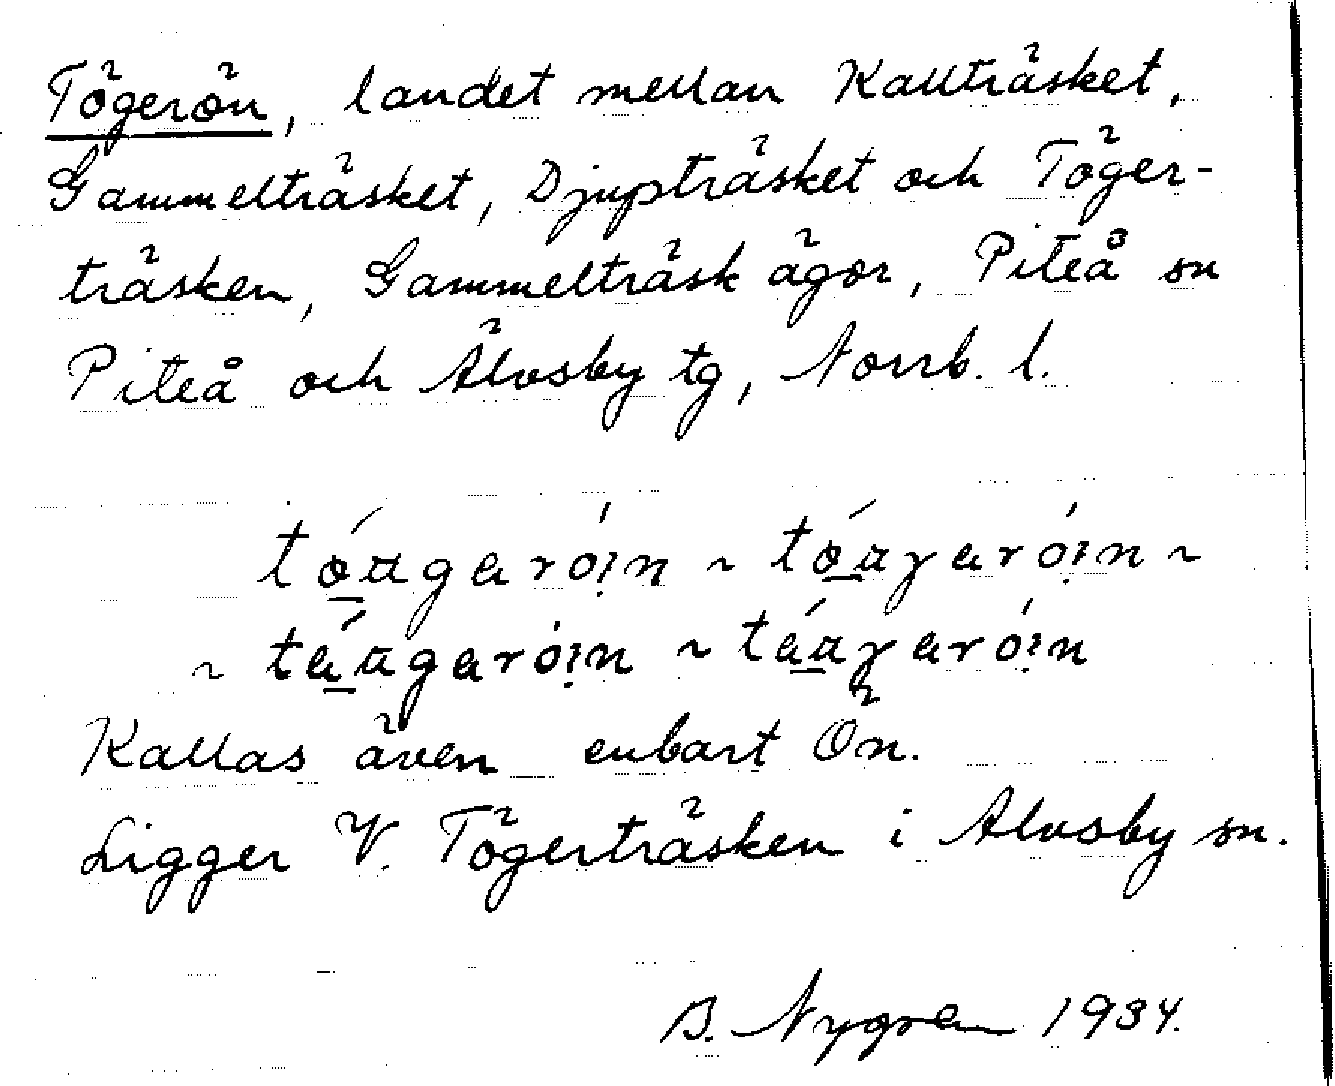 Tögerön, landet mellan Kallträsket,
Gammelträsket, Djupträsket och Töger-
träsken, Gammelträsk ägor, Piteå sn
Piteå och Älvsby tg, Norrb. l.
Kallas även enbart Ön.
Ligger V. Tögerträsken i Älvsby sn.
B. Nygren 1934.